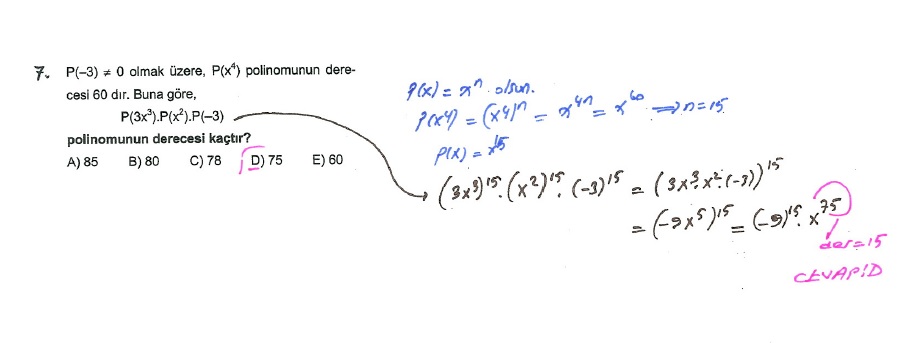 7. P(–3) ≠ 0 olmak üzere, P(x⁴) polinomunun dere-
cesi 60 dır. Buna göre,
P(3x³).P(x²).P(–3)
polinomunun derecesi kaçtır?
A) 85 B) 80 C) 78 D) 75 E) 60
P(x) = xⁿ olsun.
P(x⁴) = (x⁴)ⁿ = x⁴ⁿ = x⁶⁰ ⟹ n = 15
P(x) = x¹⁵
(3x³)¹⁵.(x²)¹⁵.(-3)¹⁵ = (3x³.x².(-3))¹⁵
= (-9x⁵)¹⁵ = (-9)¹⁵.x⁷⁵
der = 15
CEVAP:D